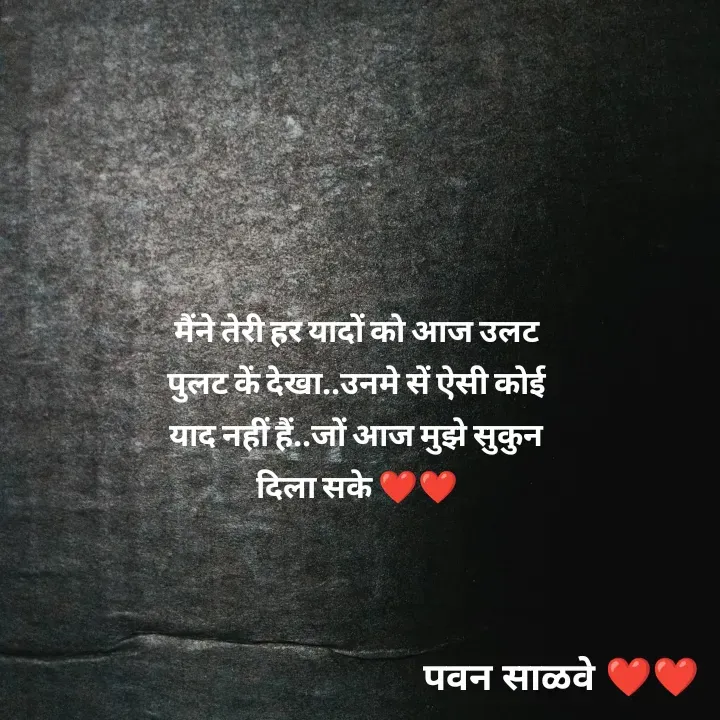 मैंने तेरी हर यादों को आज उलट
पुलट कें देखा..उनमे सें ऐसी कोई
याद नहीं हैं..जों आज मुझे सुकुन
दिला सके ❤️❤️
पवन साळवे ❤️❤️